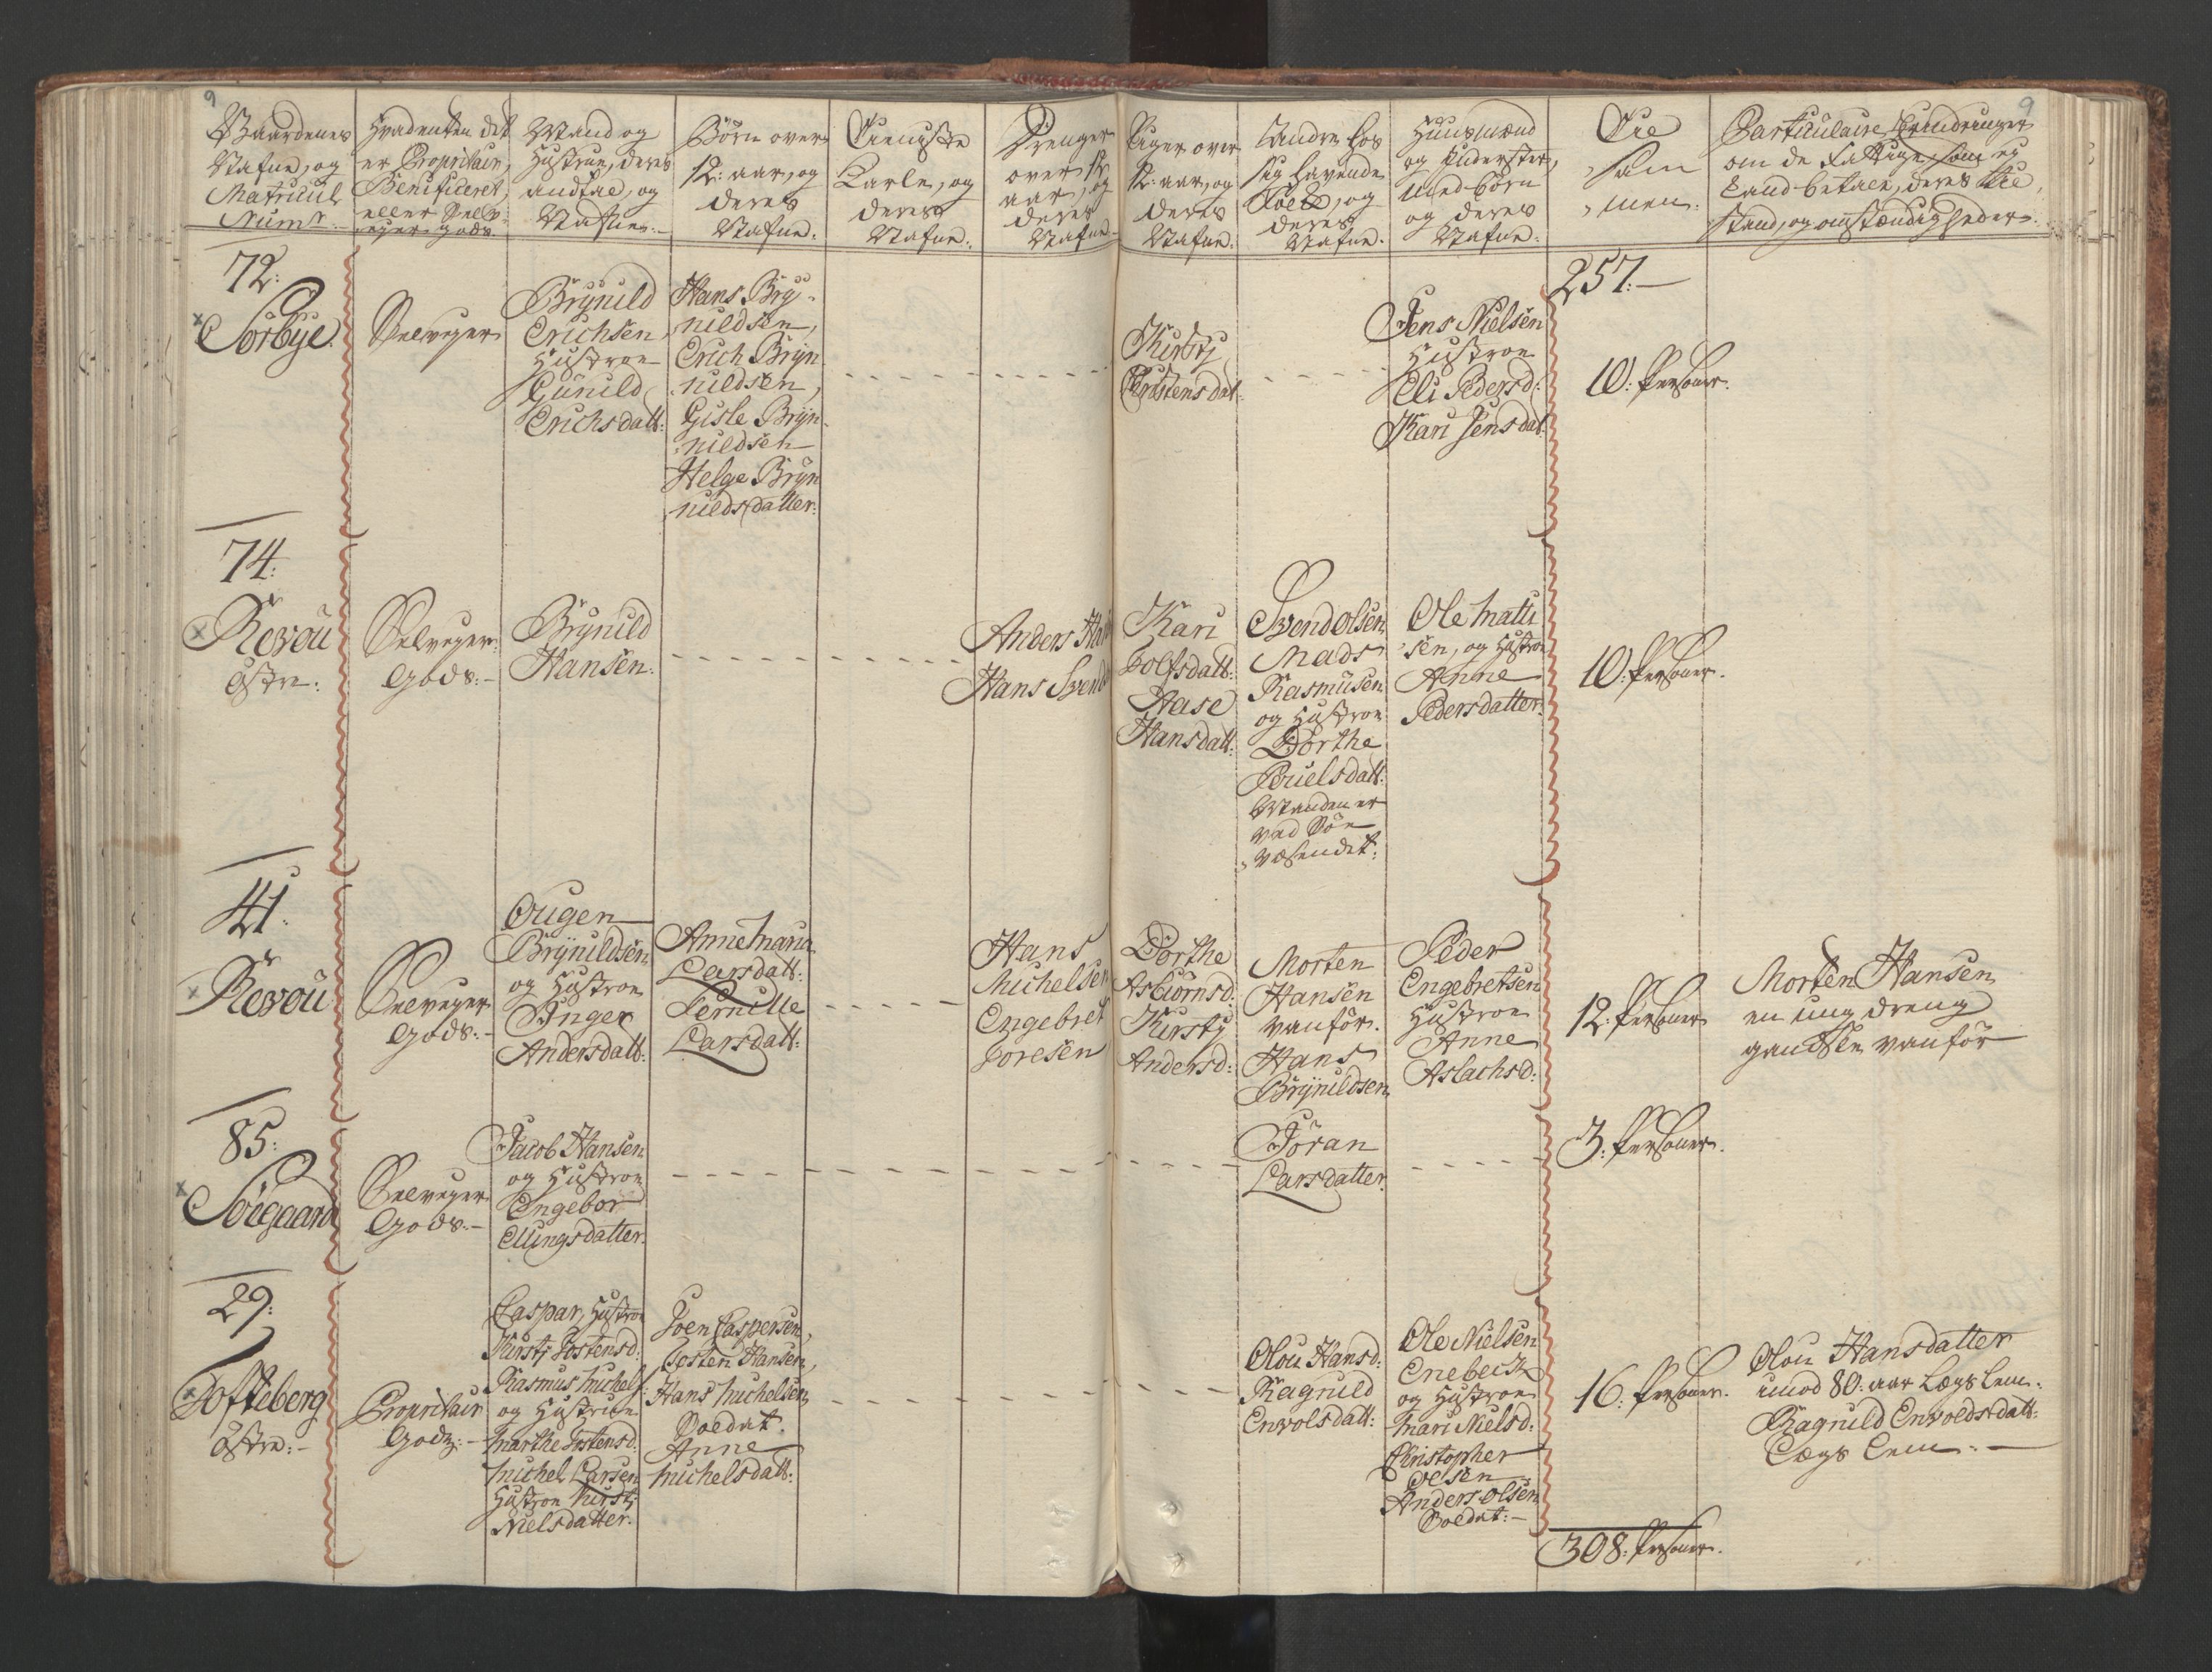 9
Gaardenes
Nafne, og
Matricul
Num̄r:
Hvadenten det
er Propritair,
Benificeret,
eller Selv-
eyer gods.
Mand og
Hustrue, deres
andtal, og
Nafne.
Börn over
12: aar, og
deres
Nafne:
Tieniste
Karle, og
deres
Nafne:
Drenger
over 12
aar, og
deres
Nafne
Piger over
12: aar, og
deres
Nafne.
Andre hos
sig havende
Folk, og
deres
Nafne.
Huusmænd
og Inderster,
med börn
og deres
Nafne:
Til
sam
men.
9
Particulaire Erindringer
om de fattige, som ey
kand betale, deres til
stand, og omstændigheder.
257:
72:
Sörbye
Selveyer
Brÿnild
Erichsen
Hustroe
Gunild
Erichsdatt:
Hans Brÿ-
nildsen,
Erich Brÿn
nildsen,
Gisle Brÿn
nildsen
Helge Brÿn
nildsdatter:
Kirstj
Christensdat:
Jens Nielsen
Hustroe
Eli Pedersd:
Kari Jensdat:
10: Personer.
74:
Revou
östre:
Selveyer
Gods:
Brÿnild
Hansen:
Anders Hans
Hans Svend
Kari
Tolfsdatt:
Aase
Hansdatt:
Svend Olsen
Mads
Rasmusen
og Hustroe
Dorthe
Pouelsdatt:
Manden er
ved Söe
Væsendet:
Ole Matti
sen, og Hustroe
Anne
Pedersdatter
10: Personer.
41:
Revou
Selveyer
Gods:
Ougen
Brÿnildsen
og Hustroe
Inger
Andersdatt:
Anne Maria
Larsdatt:
Pernille
Larsdatt:
Hans
Michelsen
Engebret
Toresen
Dorthe
Asbiörnsd:
Kirstj
Andersd:
Morten
Hansen
vanför.
Hans
Brÿnildsen
Peder
Engebretsen
Hustroe
Anne
Aslachsd:
12: Personer
Morten Hansen
en ung dreng
gandske vanför
85:
Söegaard
Selveyer
Gods:
Jacob Hansen
og Hustroe
Engebor
Ellingsdatter.
Jöran
Larsdatter.
3: Personer.
29:
Tofteberg
östre:
Propritair
Godz:
Caspar, Hustroe
Kirstj Tostensd:
Rasmus Michels:
og Hustrue
Marthe Tostensd:
Michel Larsen
Hustroe Kirstj
Nielsdatter.
Joen Caspersen,
Tosten Hansen,
Hans Michelsen
Soldat.
Anne
Michelsdatt:
Olou Hansd:
Ragnild
Envolsdatt:
Ole Nielsen
Enebech
og Hustroe
Mari Nielsd:
Christopher
Olsen
Anders Olsen
Soldat:
16: Personer.
Olou Hansdatter
imod 80: aar Lægs Lem.
Ragnild Envoldsdatt:
Lægs Lem:
308: Personer.